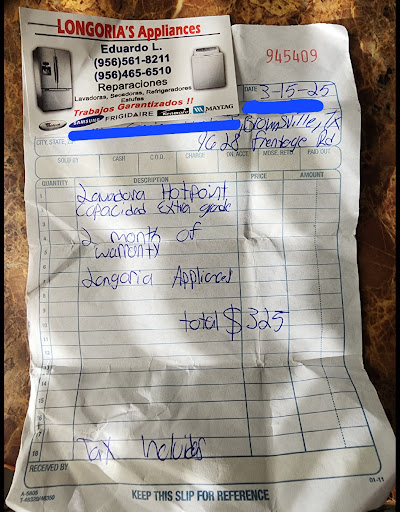 LONGORIA'S Appliances
Eduardo L.
(956)561-8211
(956)465-6510
Reparaciones
Lavadoras, Secadoras, Refrigeradores
Estufas
Trabajos Garantizados !!
Whirlpool SAMSUNG FRIGIDAIRE Kenmore MAYTAG
945409
DATE 3-15-25
Brownsville, Tx
CITY, STATE, ZIP 4628 Frontage Rd
SOLD BY CASH C.O.D. CHARGE ON. ACCT. MDSE. RETD. PAID OUT
QUANTITY DESCRIPTION PRICE AMOUNT
1 Lavadora Hotpoint
2 capacidad Extra grade
3
4 2 month of
5 warranty
6
7 Longoria Appliances
8
9
10 total $325
11
12
13
14
15
16
17
18 Tax Includes
RECEIVED BY
A-5805
T-46320/46350
KEEP THIS SLIP FOR REFERENCE
01-11